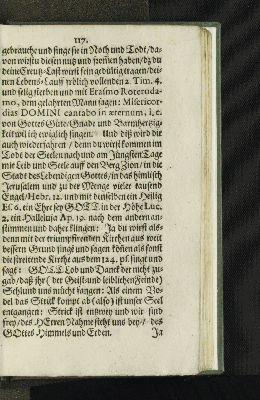 117.
gebrauche und singe sie in Noth und Todt / da-
von wirstu diesen nutz und frommen haben / dz du
deine Creutz-Last wirst fein gedültig tragen / dei-
nen Lebens-Lauff redlich vollenden 2. Tim. 4.
und selig sterben und mit Erasmo Roteroda-
mo, dem gelahrten Mann sagen: Misericor-
dias DOMINI cantabo in æternum, i. e.
von Gottes Güte / Gnade und Barmhertzig-
keit wil ich ewiglich singen. Und diß wird dir
auch wiederfahren / denn du wirst kommen im
Todt der Seelen nach und am Jüngsten Tage
mit Leib und Seele auff den Berg Zion / in die
Stadt des Lebendigen Gottes / in das himlisch
Jerusalem und zu der Menge vieler tausend
Engel / Hebr. 12. und mit denselben ein Heilig
Es. 6. ein Ehre sey GOTT in der Höhe Luc.
2. ein Halleluja Ap. 19. nach dem andern an-
stimmen und daher klingen: Ja du wirst als-
denn mit der triumpfirenden Kirchen aus weit
bessern Grund singē und sagen können als sonst
die streitende Kirche aus dem 124. ps. singt und
sagt: GOTT Lob und Danck der nicht zu-
gab / daß ihr (der Geist und leiblichen Feinde)
Schlund uns möcht fangen: Als einem Vo-
bel das Strick kompt ab (also) ist unser Seel
entgangen: Strick ist entzwey und wir sind
frey / des HErren Nahme steht uns bey / des
GOttes Himmels und Erden.
Ja